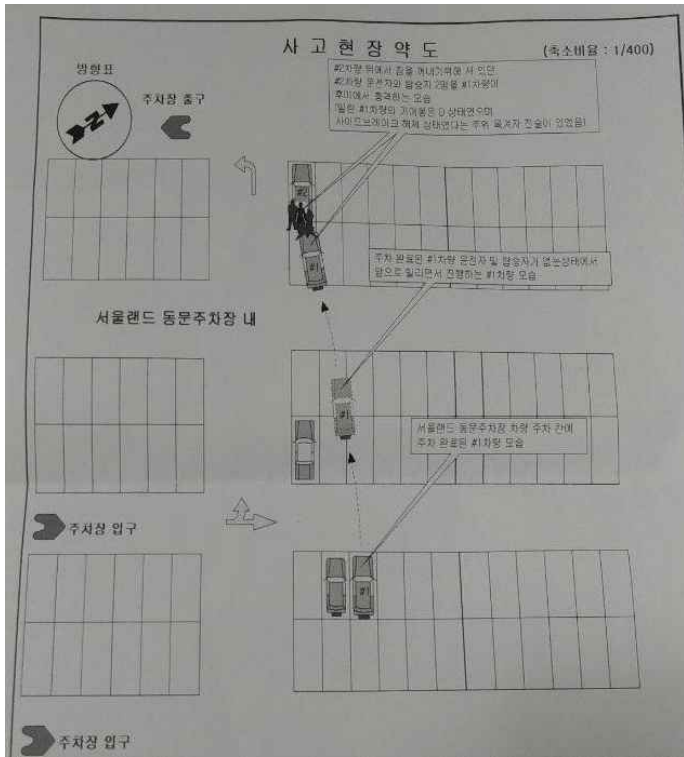 사고현장약도
(축소비율 : 1/400)
방향표
N
주차장 출구
#2차량 뒤에서 짐을 꺼내기위해 서 있던
#2차량 운전자와 탑승자 2명을 #1차량이
후미에서 충격하는 모습
(밀린 #1차량의 기어봉은 D 상태였으며
사이드브레이크 해제 상태였다는 주위 목격자 진술이 있었음)
#2
#1
주차 완료된 #1차량 운전자 및 탑승자가 없는상태에서
앞으로 밀리면서 진행하는 #1차량 모습
서울랜드 동문주차장 내
#1
서울랜드 동문주차장 차량 주차 칸에
주차 완료된 #1차량 모습
주차장 입구
#1
주차장 입구